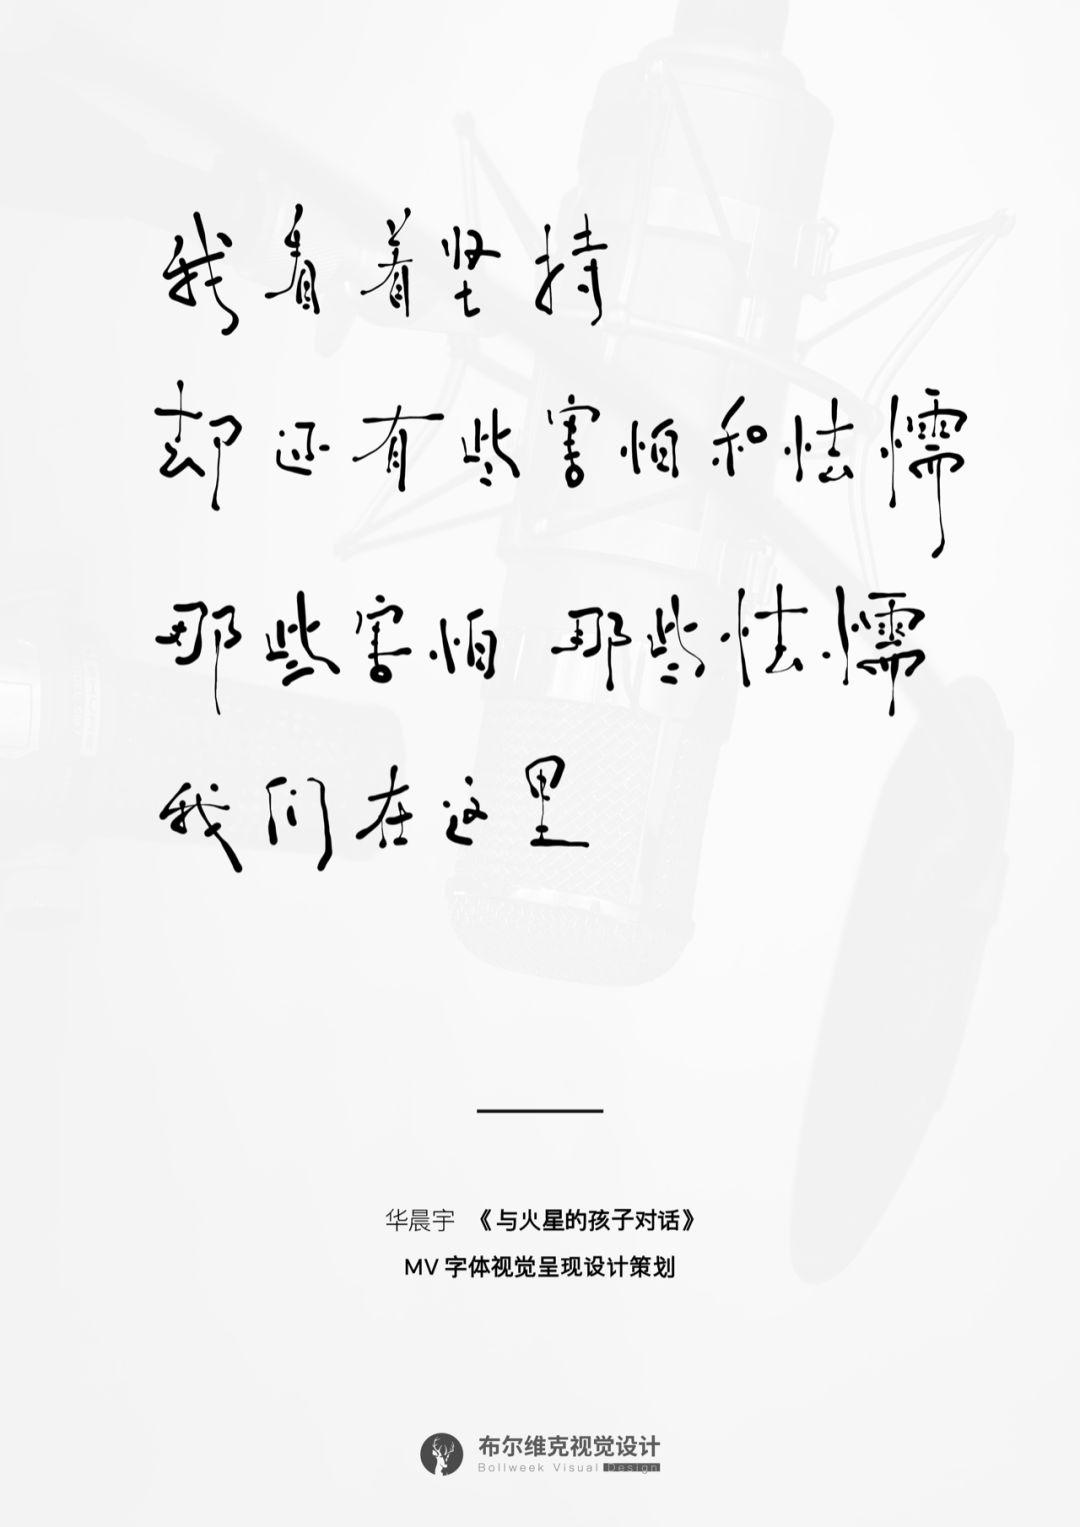 我看着坚持
却还有些害怕和怯懦
那些害怕 那些怯懦
我们在这里
华晨宇 《与火星的孩子对话》
MV 字体视觉呈现设计策划
布尔维克视觉设计
Bollweek Visual Design